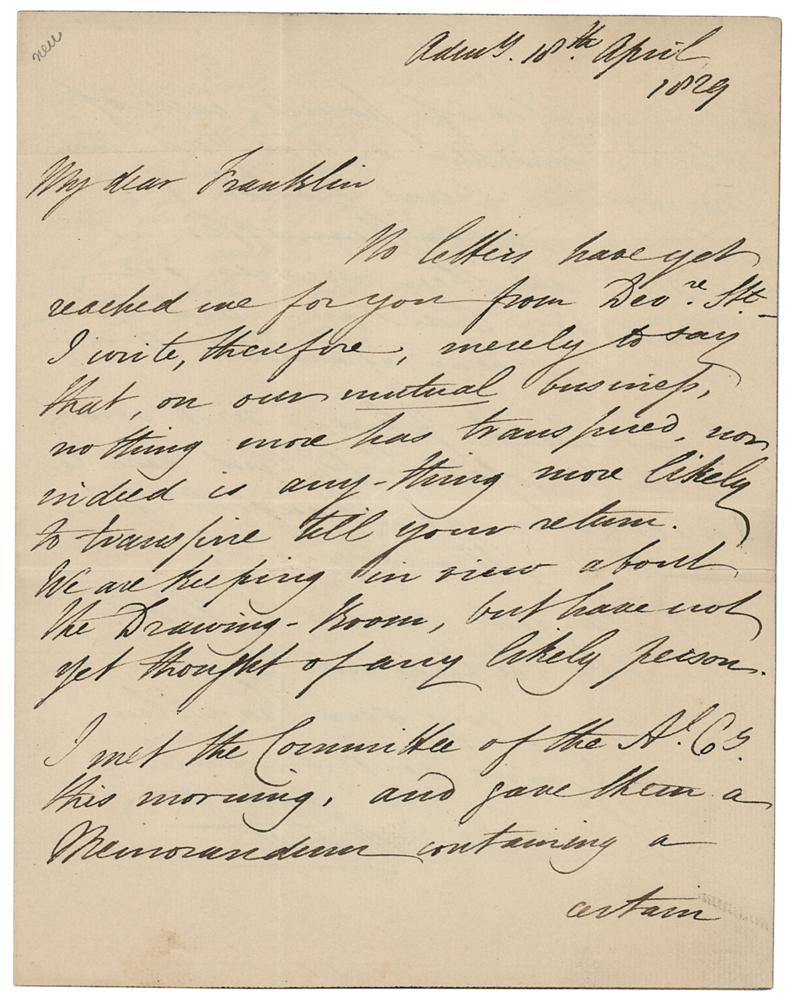 new
Admy. 18th April
1829
My dear Franklin
No letters have yet
reached me for you from Devre. Stt.
I write, therefore, merely to say
that, on our mutual business,
nothing more has transpired, nor
indeed is any-thing more likely
to transpire till your return.
We are keeping in view about
the Drawing-Room, but have not
yet thought of any likely person.
I met the Committee of the Al.
this morning, and gave them a
Memorandum containing a
certain